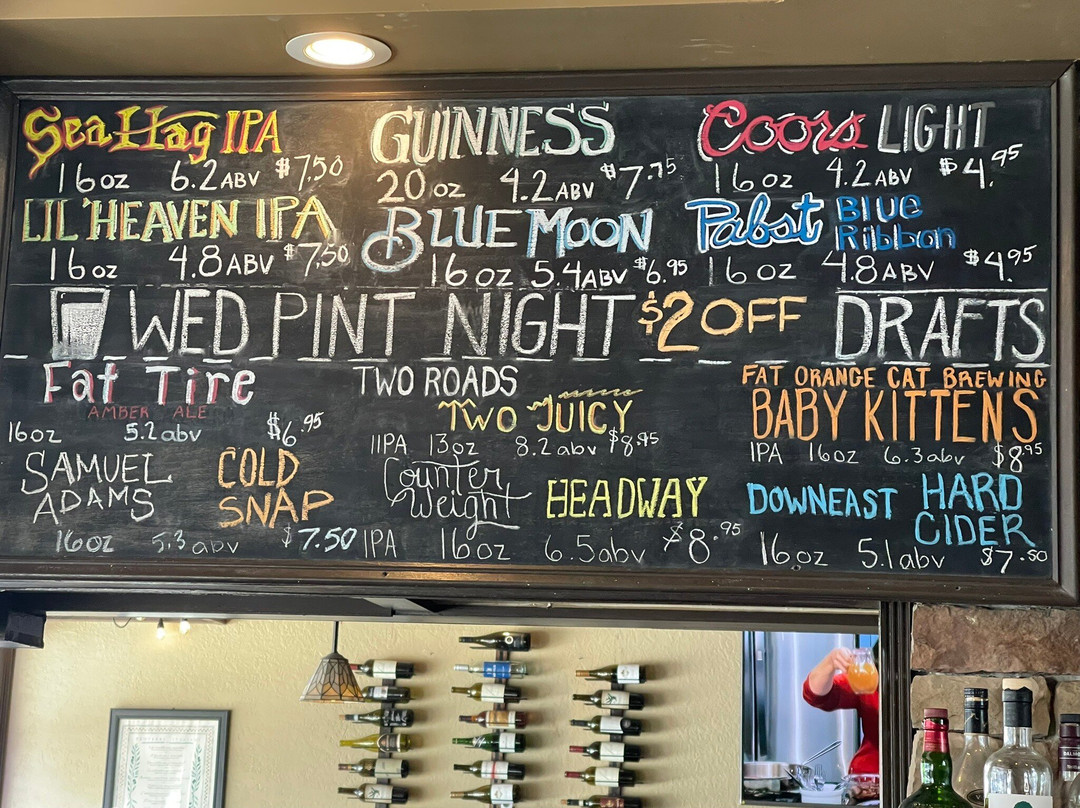 Sea Hag IPA
16oz 6.2ABV $7.50
GUINNESS
20oz 4.2ABV $7.75
Coors LIGHT
16oz 4.2ABV $4.95
LIL' HEAVEN IPA
16oz 4.8ABV $7.50
BLUE MOON
16oz 5.4ABV $6.95
Pabst Blue
Ribbon
16oz 4.8ABV $4.95
WED PINT NIGHT $2 OFF DRAFTS
Fat Tire
AMBER ALE
16oz 5.2abv $6.95
TWO ROADS
TWO JUICY
IIPA 13oz 8.2abv $8.95
FAT ORANGE CAT BREWING
BABY KITTENS
IPA 16oz 6.3abv $8.95
SAMUEL
ADAMS
COLD
SNAP
16oz 5.3abv $7.50
Counter
Weight
HEADWAY
IPA 16oz 6.5abv $8.95
DOWNEAST HARD
CIDER
16oz 5.1abv $7.50